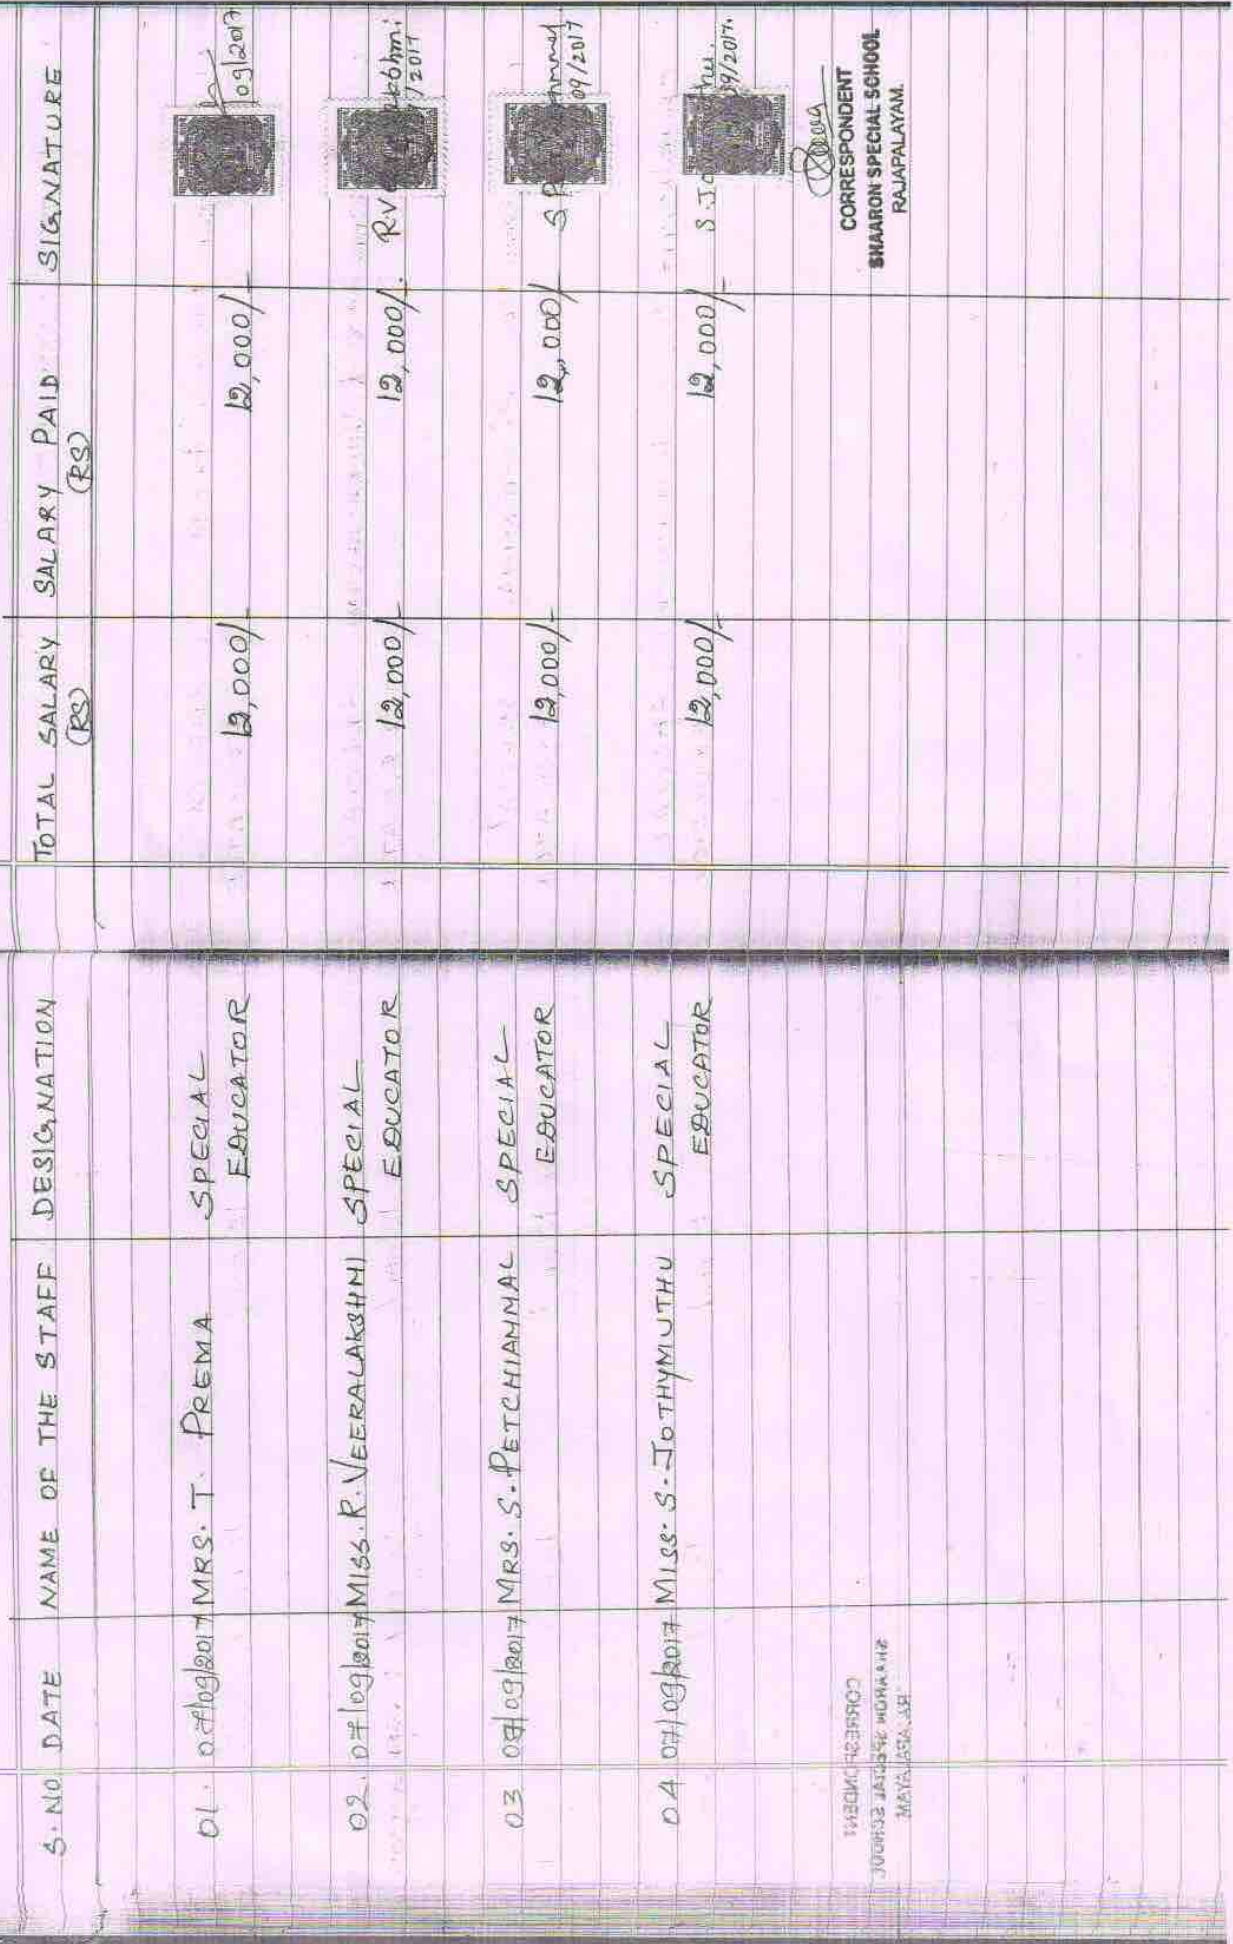 S. NO DATE NAME OF THE STAFF DESIGNATION TOTAL SALARY SALARY PAID SIGNATURE
(RS) (RS)
01. 07/09/2017 MRS. T. PREMA SPECIAL
EDUCATOR 12,000/- 12,000/- 09/2017
02. 07/09/2017 MISS. R. VEERALAKSHMI SPECIAL
EDUCATOR 12,000/- 12,000/-. R.V /2017
03 07/09/2017 MRS. S. PETCHIAMMAL SPECIAL
EDUCATOR 12,000/- 12,000/- S 09/2017
04 07/09/2017 MISS. S. JOTHYMUTHU SPECIAL
EDUCATOR 12,000/- 12,000/- S. Jo thu. 09/2017.
CORRESPONDENT
SHAARON SPECIAL SCHOOL
RAJAPALAYAM.